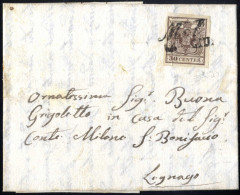 30 CENTES
Ornatissimo Sig.r Buona
Grigoletto in Casa del Sig.r
Conte Milano S. Bonifacio
Legnago